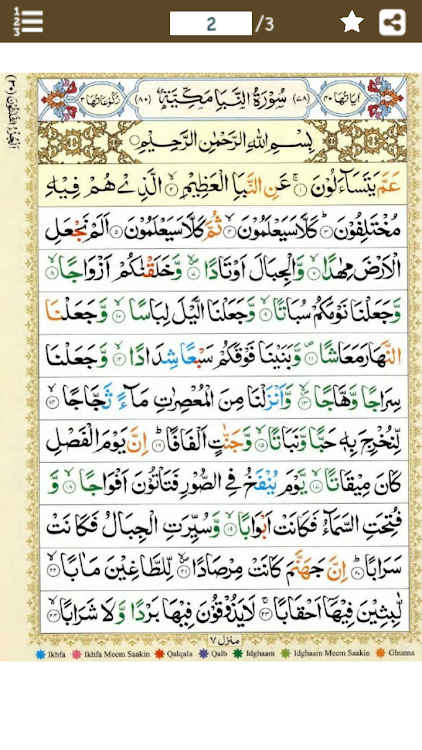 2 /3
اٰیَاتُهَا ۴۰ (۷۸) سُوْرَةُ النَّبَاِ مَكِّیَّةٌ (۸۰) رُكُوْعَاتُهَا ۲
بِسْمِ اللّٰهِ الرَّحْمٰنِ الرَّحِیْمِ
عَمَّ یَتَسَآءَلُوْنَ ۱ عَنِ النَّبَاِ الْعَظِیْمِ ۲ الَّذِیْ هُمْ فِیْهِ
مُخْتَلِفُوْنَ ۳ كَلَّا سَیَعْلَمُوْنَ ۴ ثُمَّ كَلَّا سَیَعْلَمُوْنَ ۵ اَلَمْ نَجْعَلِ
الْاَرْضَ مِهٰدًا ۶ وَّالْجِبَالَ اَوْتَادًا ۷ وَّخَلَقْنٰكُمْ اَزْوَاجًا ۸
وَّجَعَلْنَا نَوْمَكُمْ سُبَاتًا ۹ وَّجَعَلْنَا الَّیْلَ لِبَاسًا ۱۰ وَّجَعَلْنَا
النَّهَارَ مَعَاشًا ۱۱ وَّبَنَیْنَا فَوْقَكُمْ سَبْعًا شِدَادًا ۱۲ وَّجَعَلْنَا
سِرَاجًا وَّهَّاجًا ۱۳ وَّاَنْزَلْنَا مِنَ الْمُعْصِرٰتِ مَآءً ثَجَّاجًا ۱۴
لِّنُخْرِجَ بِهٖ حَبًّا وَّنَبَاتًا ۱۵ وَّجَنّٰتٍ اَلْفَافًا ۱۶ اِنَّ یَوْمَ الْفَصْلِ
كَانَ مِیْقَاتًا ۱۷ یَّوْمَ یُنْفَخُ فِی الصُّوْرِ فَتَاْتُوْنَ اَفْوَاجًا ۱۸ وَّ
فُتِحَتِ السَّمَآءُ فَكَانَتْ اَبْوَابًا ۱۹ وَّسُیِّرَتِ الْجِبَالُ فَكَانَتْ
سَرَابًا ۲۰ اِنَّ جَهَنَّمَ كَانَتْ مِرْصَادًا ۲۱ لِّلطَّاغِیْنَ مَاٰبًا ۲۲
لّٰبِثِیْنَ فِیْهَاۤ اَحْقَابًا ۲۳ لَا یَذُوْقُوْنَ فِیْهَا بَرْدًا وَّلَا شَرَابًا ۲۴
منزل ۷
Ikhfa Ikhfa Meem Saakin Qalqala Qalb Idghaam Idghaam Meem Saakin Ghunna